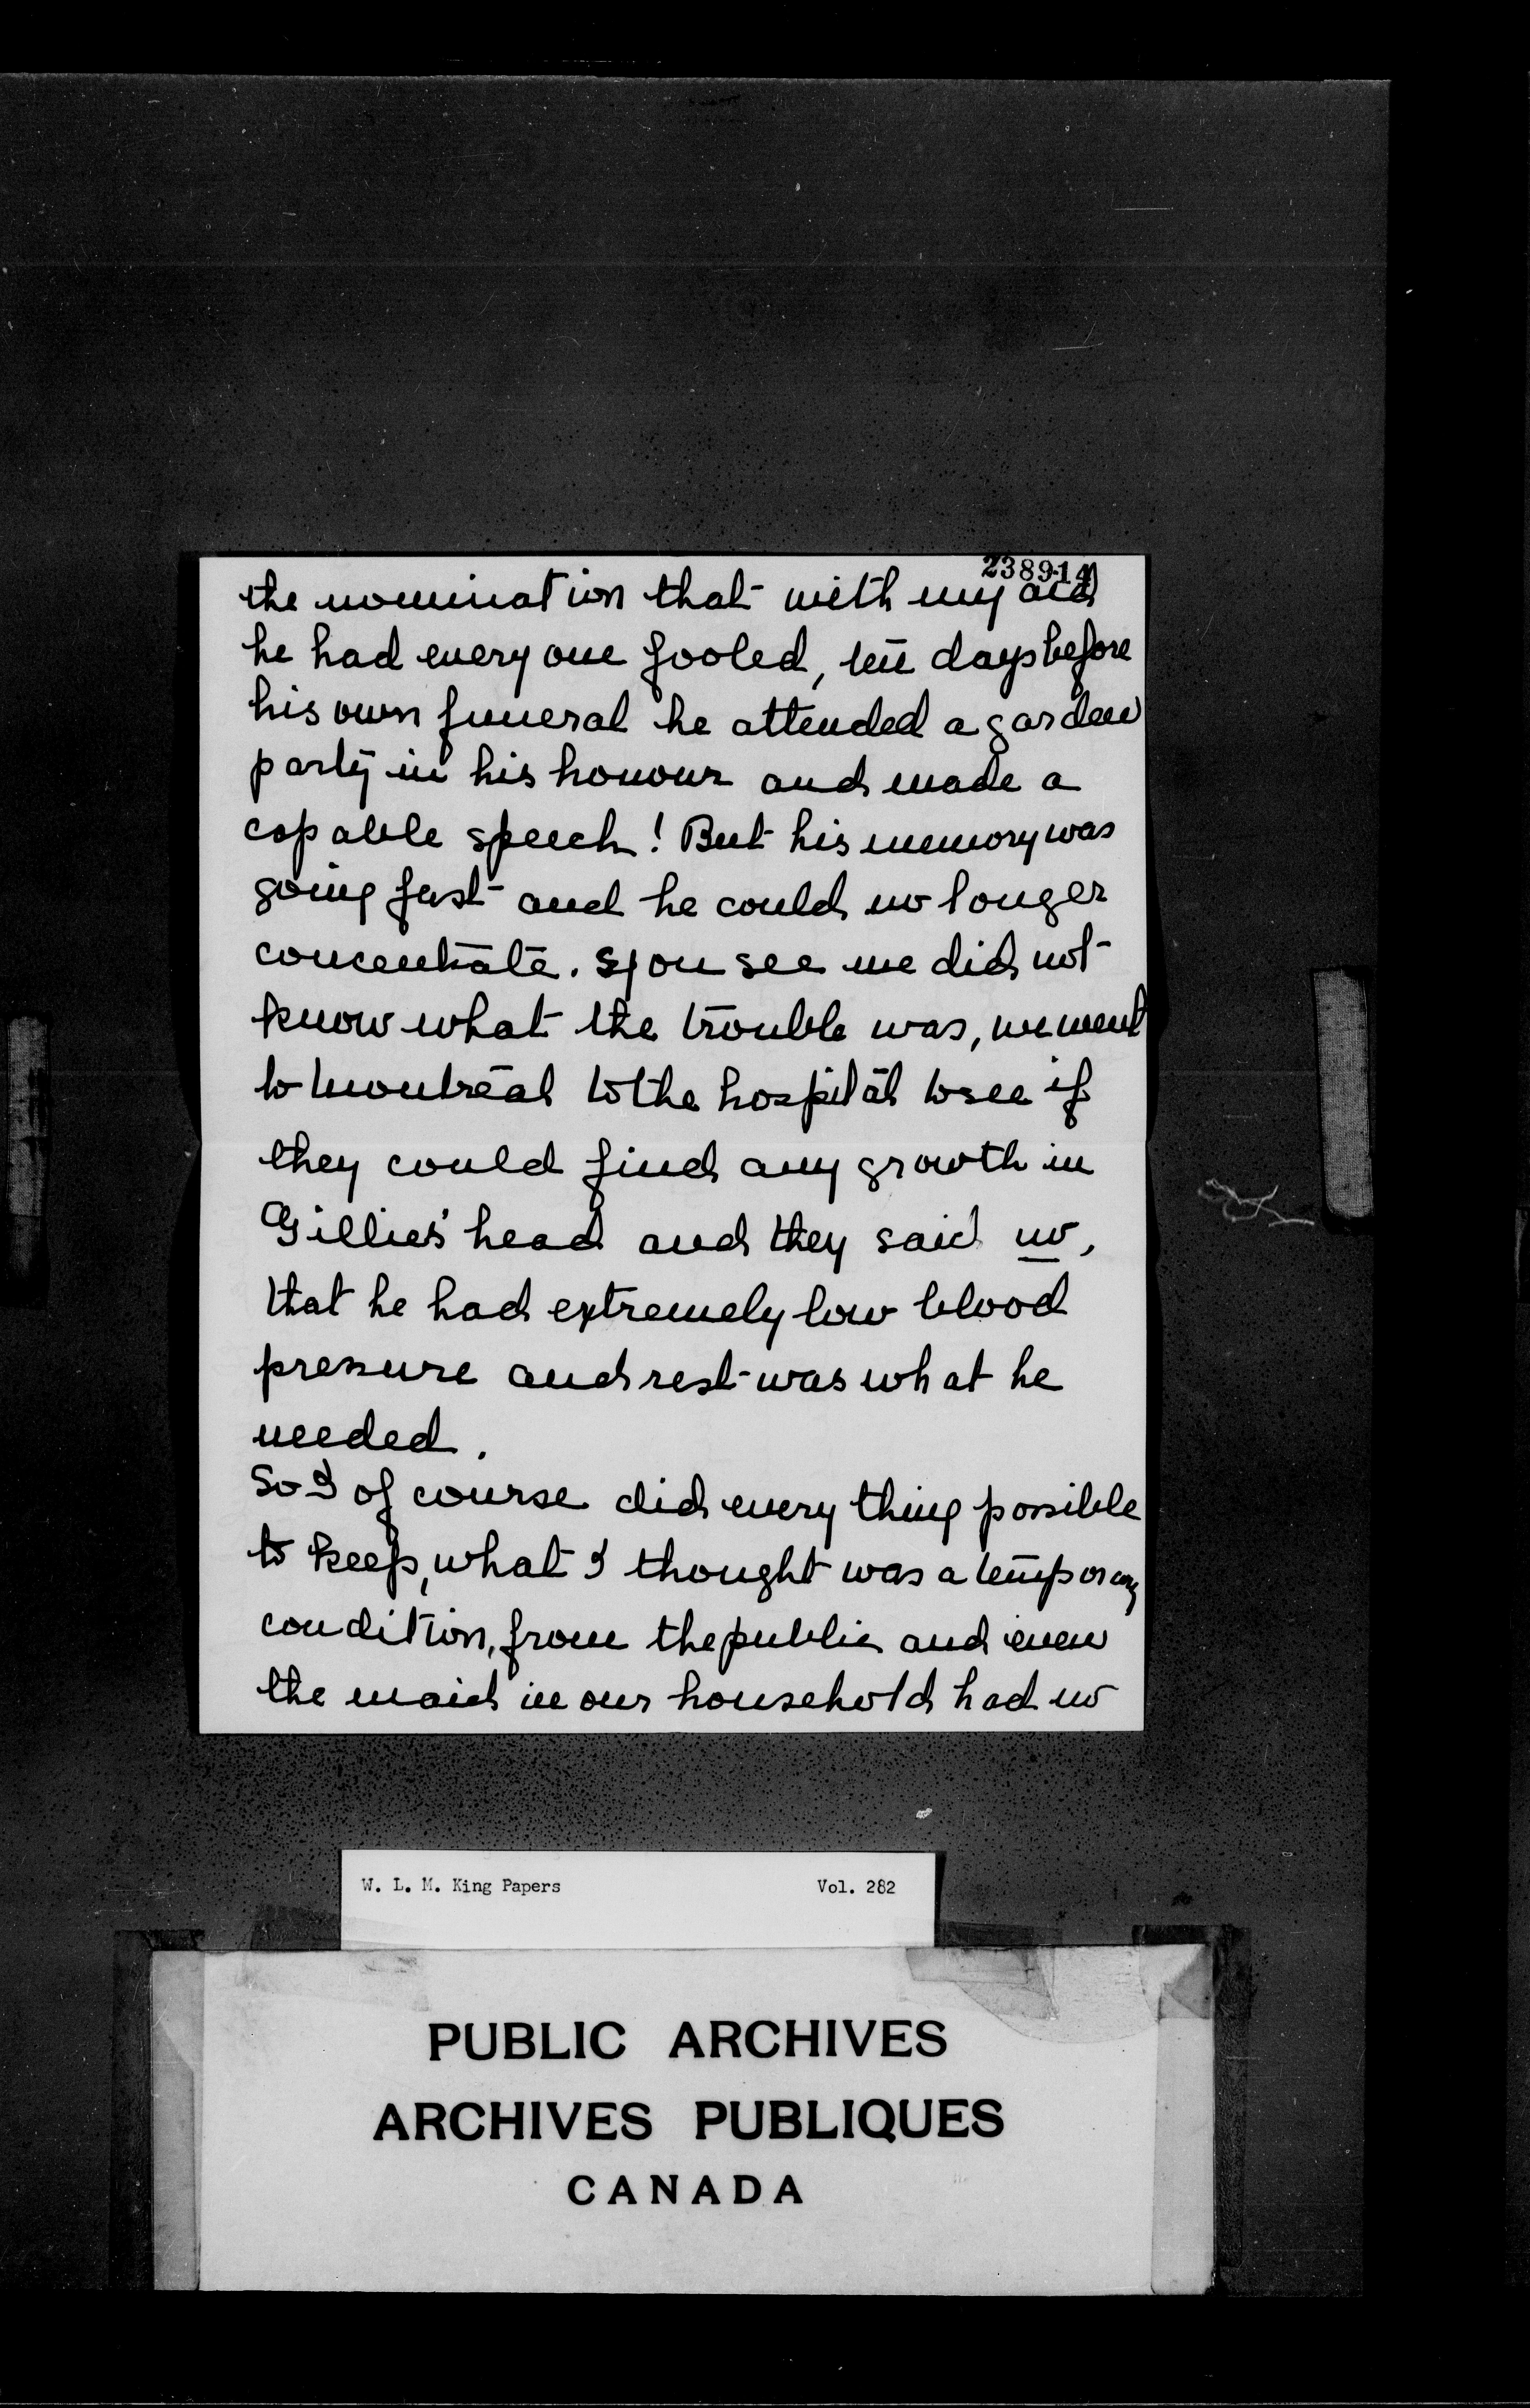 238914
the nomination that with my aid
he had every one fooled, ten days before
his own funeral he attended a garden
party in his honour and made a
capable speech! But his memory was
going fast and he could no longer
concentrate. You see we did not
know what the trouble was, we went
to Montreal to the hospital to see if
they could find any growth in
Gillies' head and they said no,
that he had extremely low blood
pressure and rest was what he
needed.
So I of course did every thing possible
to keep, what I thought was a temporary
condition, from the public and even
the maid in our household had no
W. L. M. King Papers Vol. 282
PUBLIC ARCHIVES
ARCHIVES PUBLIQUES
CANADA